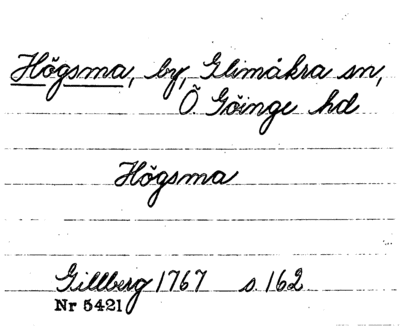 Högsma, by, Glimåkra sn,
Ö. Göinge hd
Högsma
Gillberg 1767 s. 162
Nr 5421